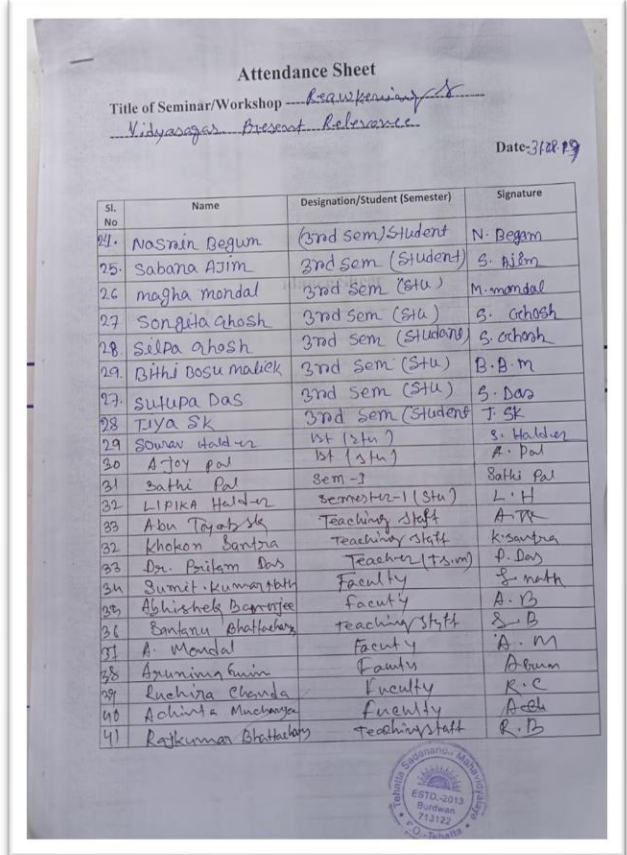 Attendance Sheet
Title of Seminar/Workshop ---- Reawkening of
Vidyasagar Present Relevance
Date-31.08.19
Sl. No Name Designation/Student (Semester) Signature
24. Nasrin Begum (3rd sem) Student N. Begam
25. Sabana AJim 3rd sem (Student) S. AJim
26 magha mondal 3rd sem (Stu) M. mondal
27 Songita Ghosh 3rd sem (Stu) S. Ghosh
28. Silpa Ghosh 3rd sem (Student) S. Ghosh
29. Bithi Bosu mallick 3rd sem (Stu) B.B.M
27. Sutupa Das 3rd sem (Stu) S. Das
28 TIYA SK 3rd sem (Student T. SK
29 Sourav Halder 1st (stu) S. Halder
30 AJoy pal 1st (stu) A. pal
31 Sathi Pal sem-I Sathi Pal
32 LIPIKA Halder semester-I (Stu) L.H
33 Abu Tayab sk Teaching staff
32 Khokon Santra Teaching staff K. santra
33 Dr. Pritam Das Teacher (T.S.M) P. Das
34 Sumit. Kumar nath Faculty S. nath
35 Abhishek Banerjee faculty A.B
36 Santanu Bhattachary teaching staff S.B
37 A. Mondal Faculty A.M
38 Arunima Faculty
39 Ruchira Chanda Faculty R.C
40 Achinta faculty
41 Rajkumar Bhattachary teaching staff R.B
Tehatta Sadananda Mahavidyalaya
ESTD.-2013
Burdwan
713122
P.O.-Tehatta